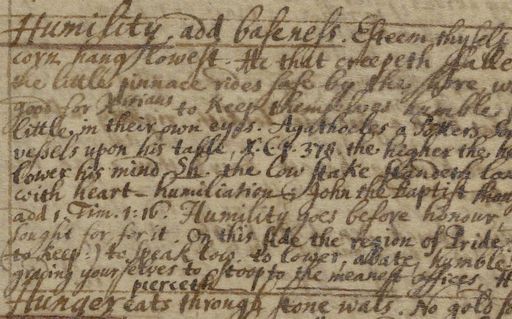 Humility, add baseness. Esteem thyself
corn hangs lowest. He that creepeth
the little pinnace rides safe by the shore, w
good for Xtians to keep themselves humble
little in their own eyes. Agathocles a Potters So
vessels upon his table, X.C.P. 378. the higher the
lower his mind Sh. the low stake standeth lon
with heart-humiliation. John the Baptist thou
add 1. Tim. 1:16. Humility goes before honour
sought for for it. On this side the region of Pride
to keep:) to speak low. to lower, abate, humble
gracing yourselves to stoop to the meanest offices. H
pierceth
Hunger eats through stone wals. No gold fo